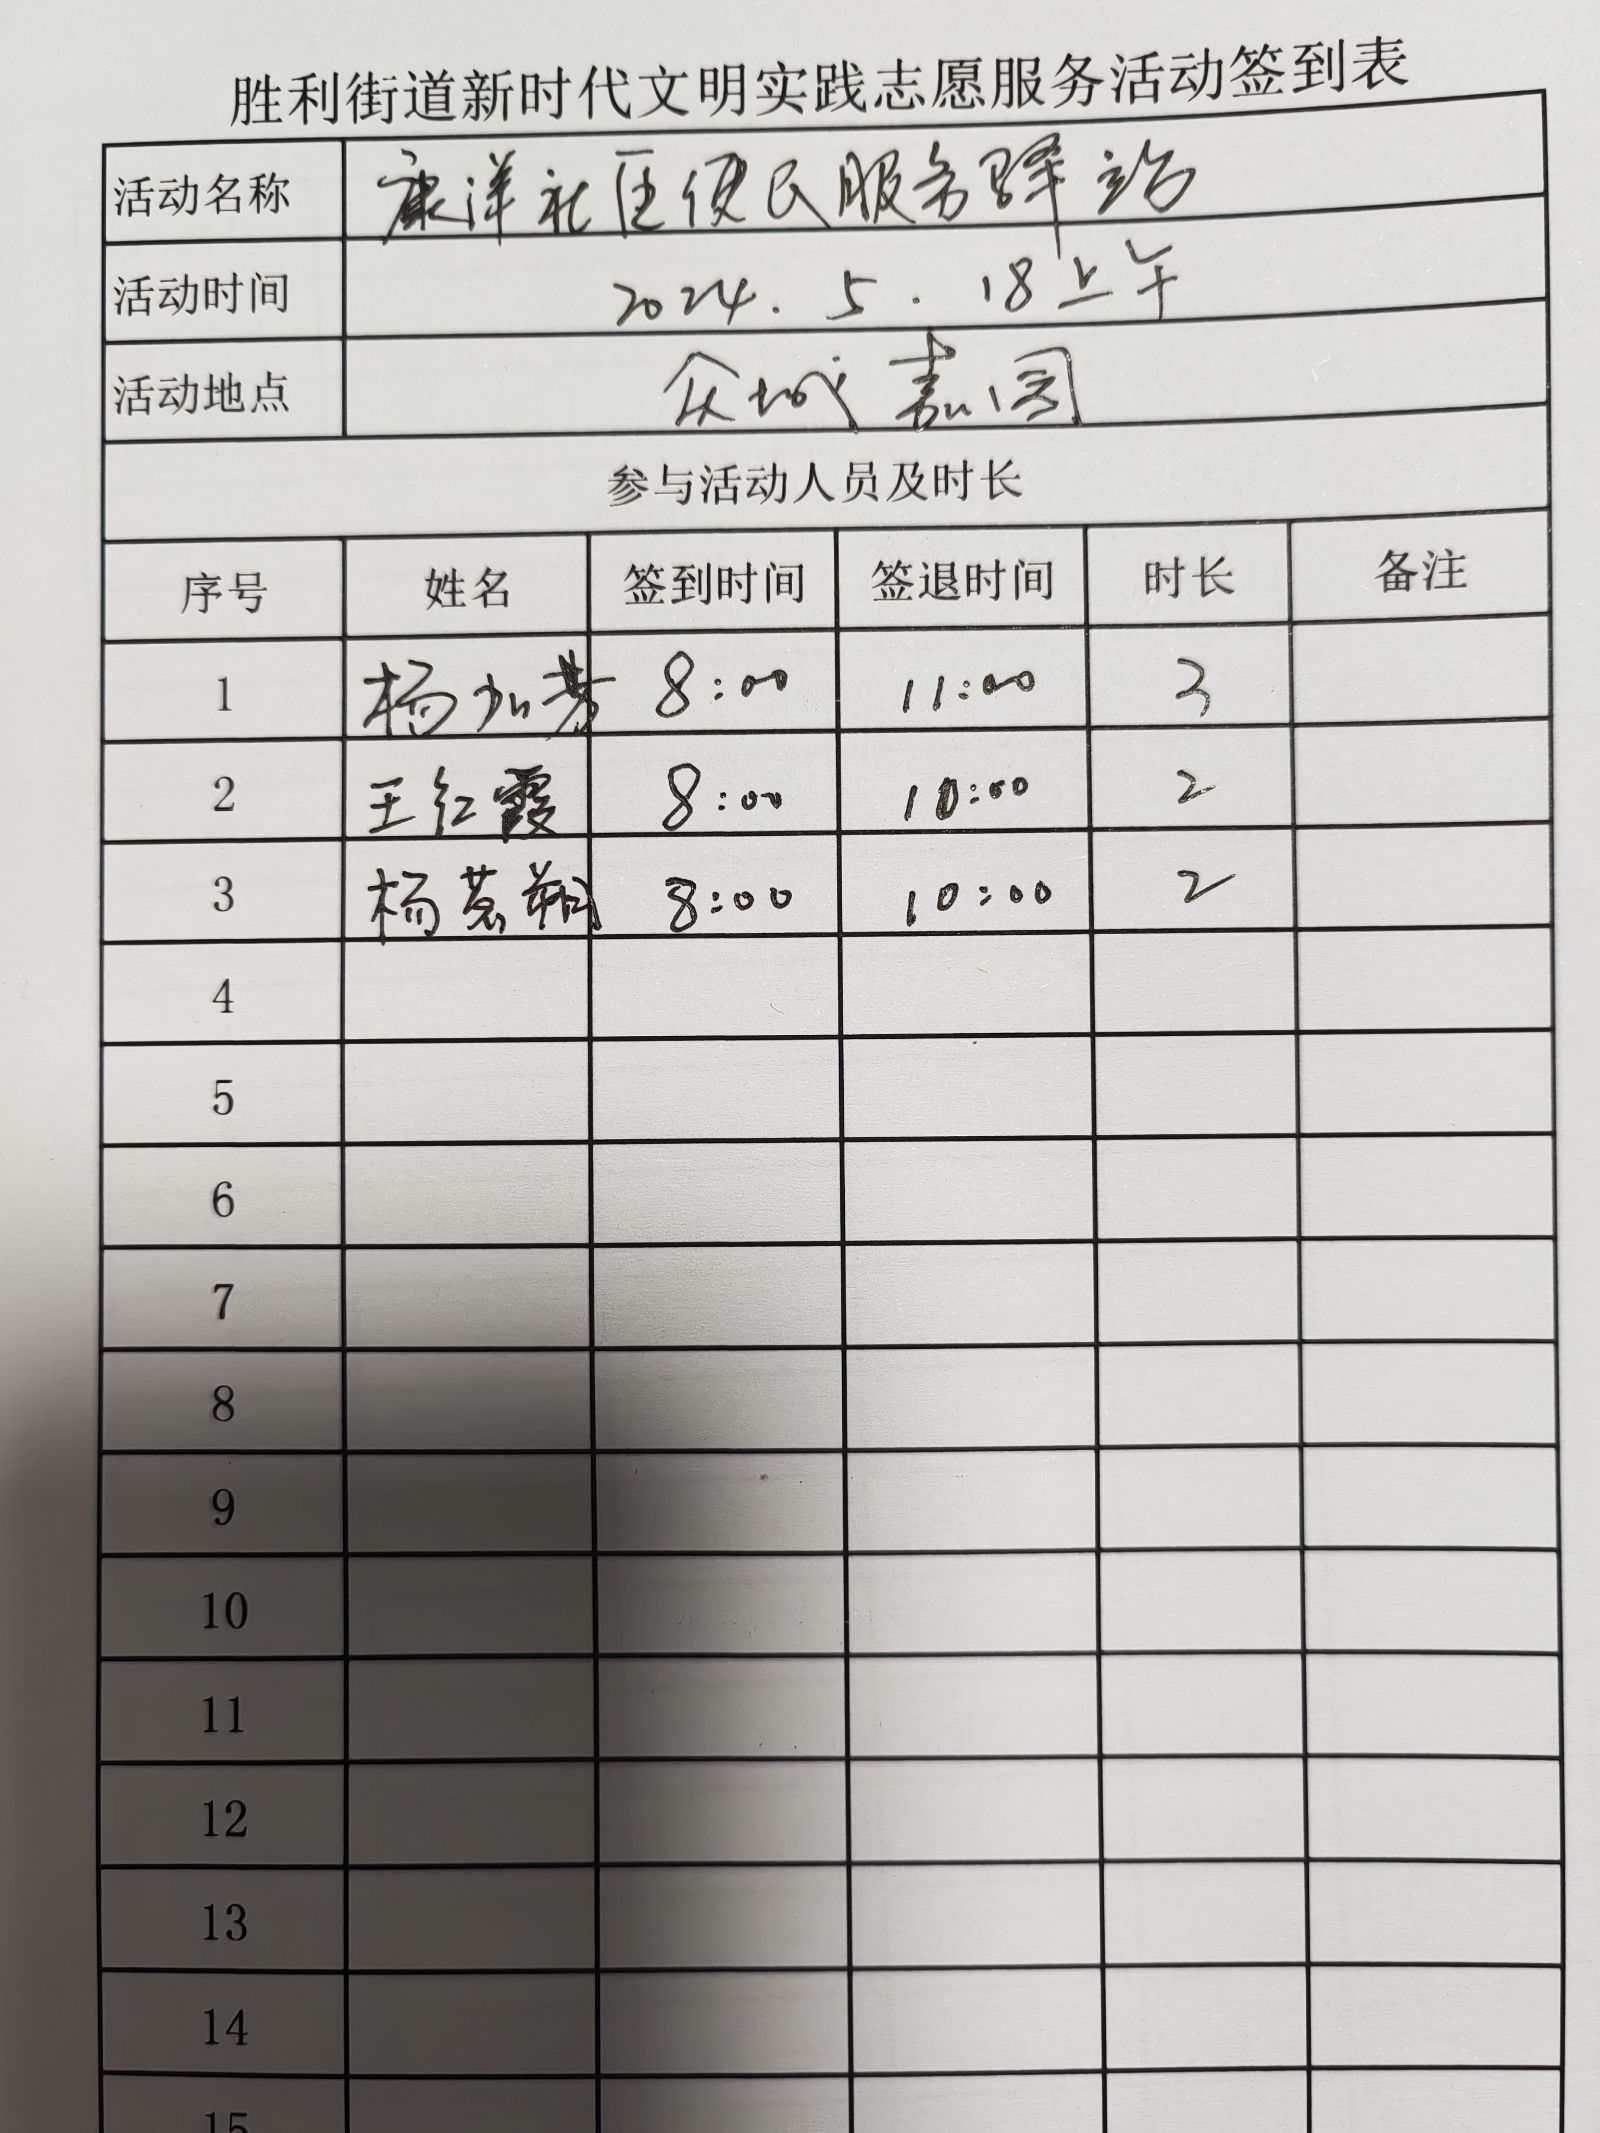 胜利街道新时代文明实践志愿服务活动签到表
活动名称 康洋社区便民服务驿站
活动时间 2024.5.18上午
活动地点 众城嘉园
参与活动人员及时长
序号 姓名 签到时间 签退时间 时长 备注
1 杨 8:00 11:00 3
2 王红霞 8:00 10:00 2
3 杨 8:00 10:00 2
4
5
6
7
8
9
10
11
12
13
14
15